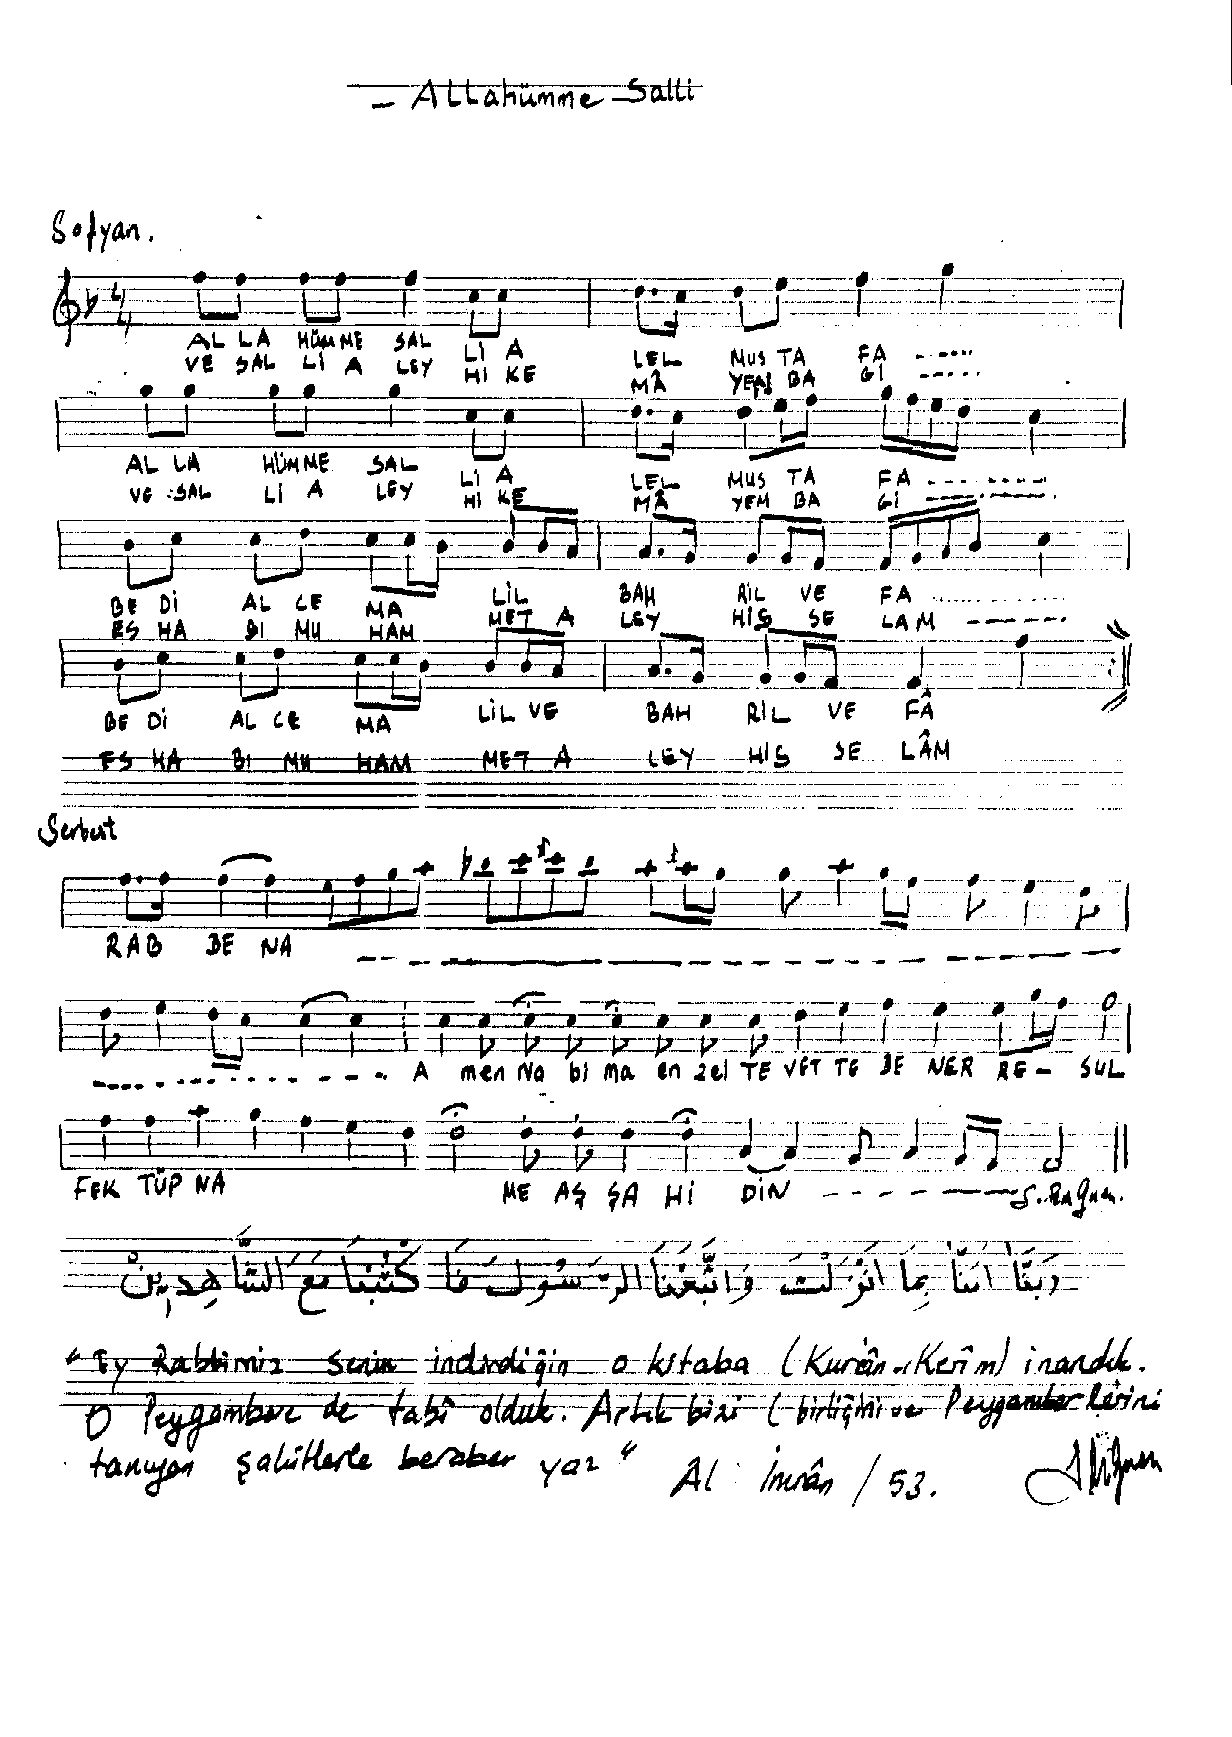 - Allahümme Salli
Sofyan.
4/4
AL LA HÜMME SAL Lİ A LEL MUS TA FA ------
VE SAL Lİ A LEY Hİ KE MÂ YEM BA GI -----
AL LA HÜMME SAL Lİ A LEL MUS TA FA ---------
VE SAL Lİ A LEY Hİ KE MÂ YEM BA GI ---------
BE Dİ AL CE MA LİL BAH RİL VE FA ............
ES HA BI MU HAM MET A LEY HİS SE LAM -------
BE Dİ AL CE MA LİL VE BAH RİL VE FÂ
ES HA BI MU HAM MET A LEY HİS SE LÂM
Serbest
RAB BE NA ---------------
--------------- A men Na bi ma en zel TE VET TE BE NER RE - SUL
FEK TÜP NA ME AŞ ŞA Hİ DİN ------
رَبَّنَا اٰمَنَّا بِمَا اَنْزَلْتَ وَاتَّبَعْنَا الرَّسُولَ فَا كْتُبْنَا مَعَ الشَّاهِدِينْ
"Ey Rabbimiz senin indirdiğin o kitaba (Kur'ân-ı Kerîm) inandık.
O Peygambere de tabî olduk. Artık bizi (birliğini ve Peygamberlerini
tanıyan şahitlerle beraber yaz" Âl-i İmrân / 53.